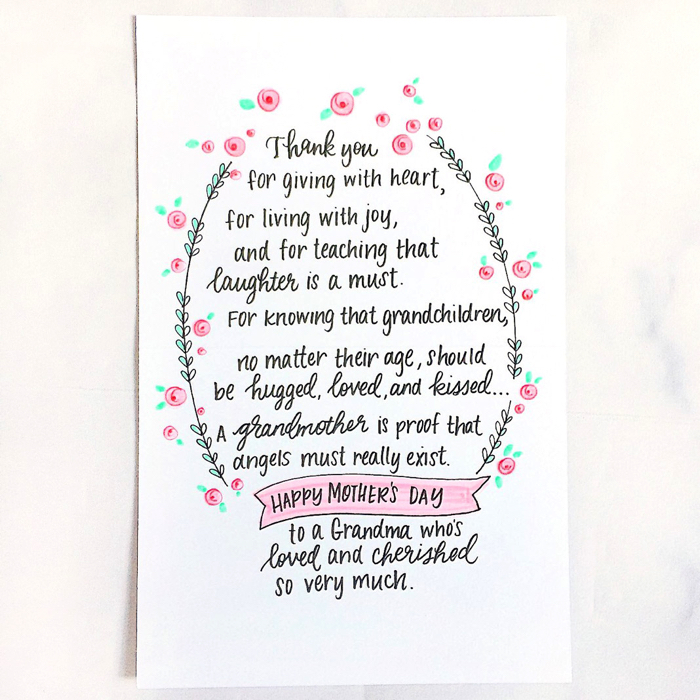 Thank you
for giving with heart,
for living with joy,
and for teaching that
laughter is a must.
For knowing that grandchildren,
no matter their age, should
be hugged, loved, and kissed...
A grandmother is proof that
angels must really exist.
HAPPY MOTHER'S DAY
to a Grandma who's
loved and cherished
so very much.